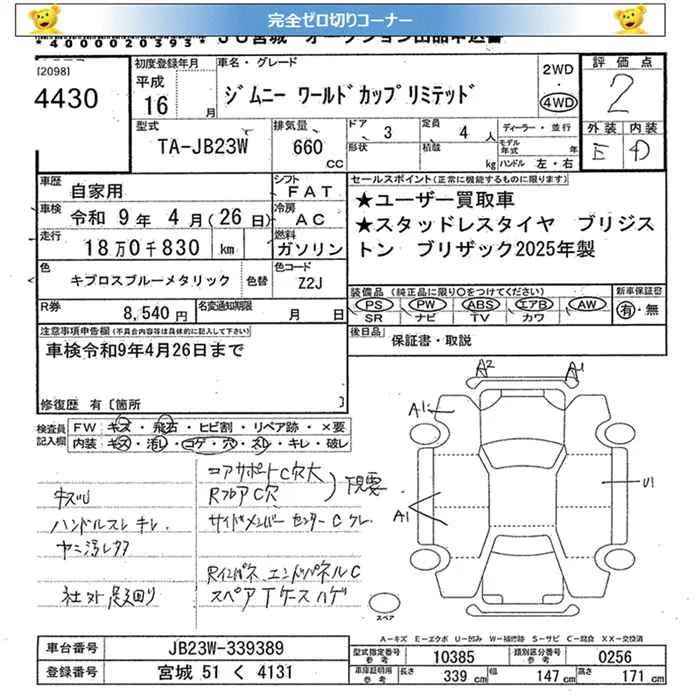 完全ゼロ切りコーナー
*4000020393* JU宮城 オークション出品申込書
[2098]
4430
初度登録年月
平成
16 月
車名・グレード
ジムニー ワールドカップリミテッド
2WD
・
4WD
評価点
2
外装 内装
E D
型式
TA-JB23W
排気量
660
CC
ドア 3
形状
定員 4 人
積載 kg
ディーラー・並行
モデル年式 年
ハンドル 左・右
車歴 自家用
シフト FAT
車検 令和 9年 4月(26日)
冷房 AC
走行 18万0千830 km
燃料 ガソリン
色 キプロスブルーメタリック 色替
色コード Z2J
R券 8,540円
名変通知期限 月 日
セールスポイント(正常に機能するものに限ります)
★ユーザー買取車
★スタッドレスタイヤ ブリジストン ブリザック2025年製
装備品(純正品に限り○をつけてください)
PS PW ABS エアB AW
SR ナビ TV カワ
新車保証書
有・無
後日品 保証書・取説
注意事項申告欄(不具合内容等は具体的に記入して下さい)
車検令和9年4月26日まで
修復歴 有〔箇所 〕
検査員記入欄
FW キズ・飛石・ヒビ割・リペア跡・×要
内装 キズ・汚レ・コゲ・穴・スレ・キレ・破レ
コアサポートC穴大
RフロアC穴
下見要
キズU
ハンドルスレ キレ
サイドメンバー センターC
ヤニ汚レ
Rインパネ エンドパネルC
社外足廻り
スペアTケース ハゲ
A2 A1
A1
U1
A1
スペア
A-キズ E-エクボ U-凹み W-補修跡 S-サビ C-腐食 XX-交換済
車台番号 JB23W-339389
登録番号 宮城 51 く 4131
型式指定番号 参考 10385
類別区分番号 参考 0256
車庫証明用 参考 長さ 339 cm 幅 147 cm 高さ 171 cm